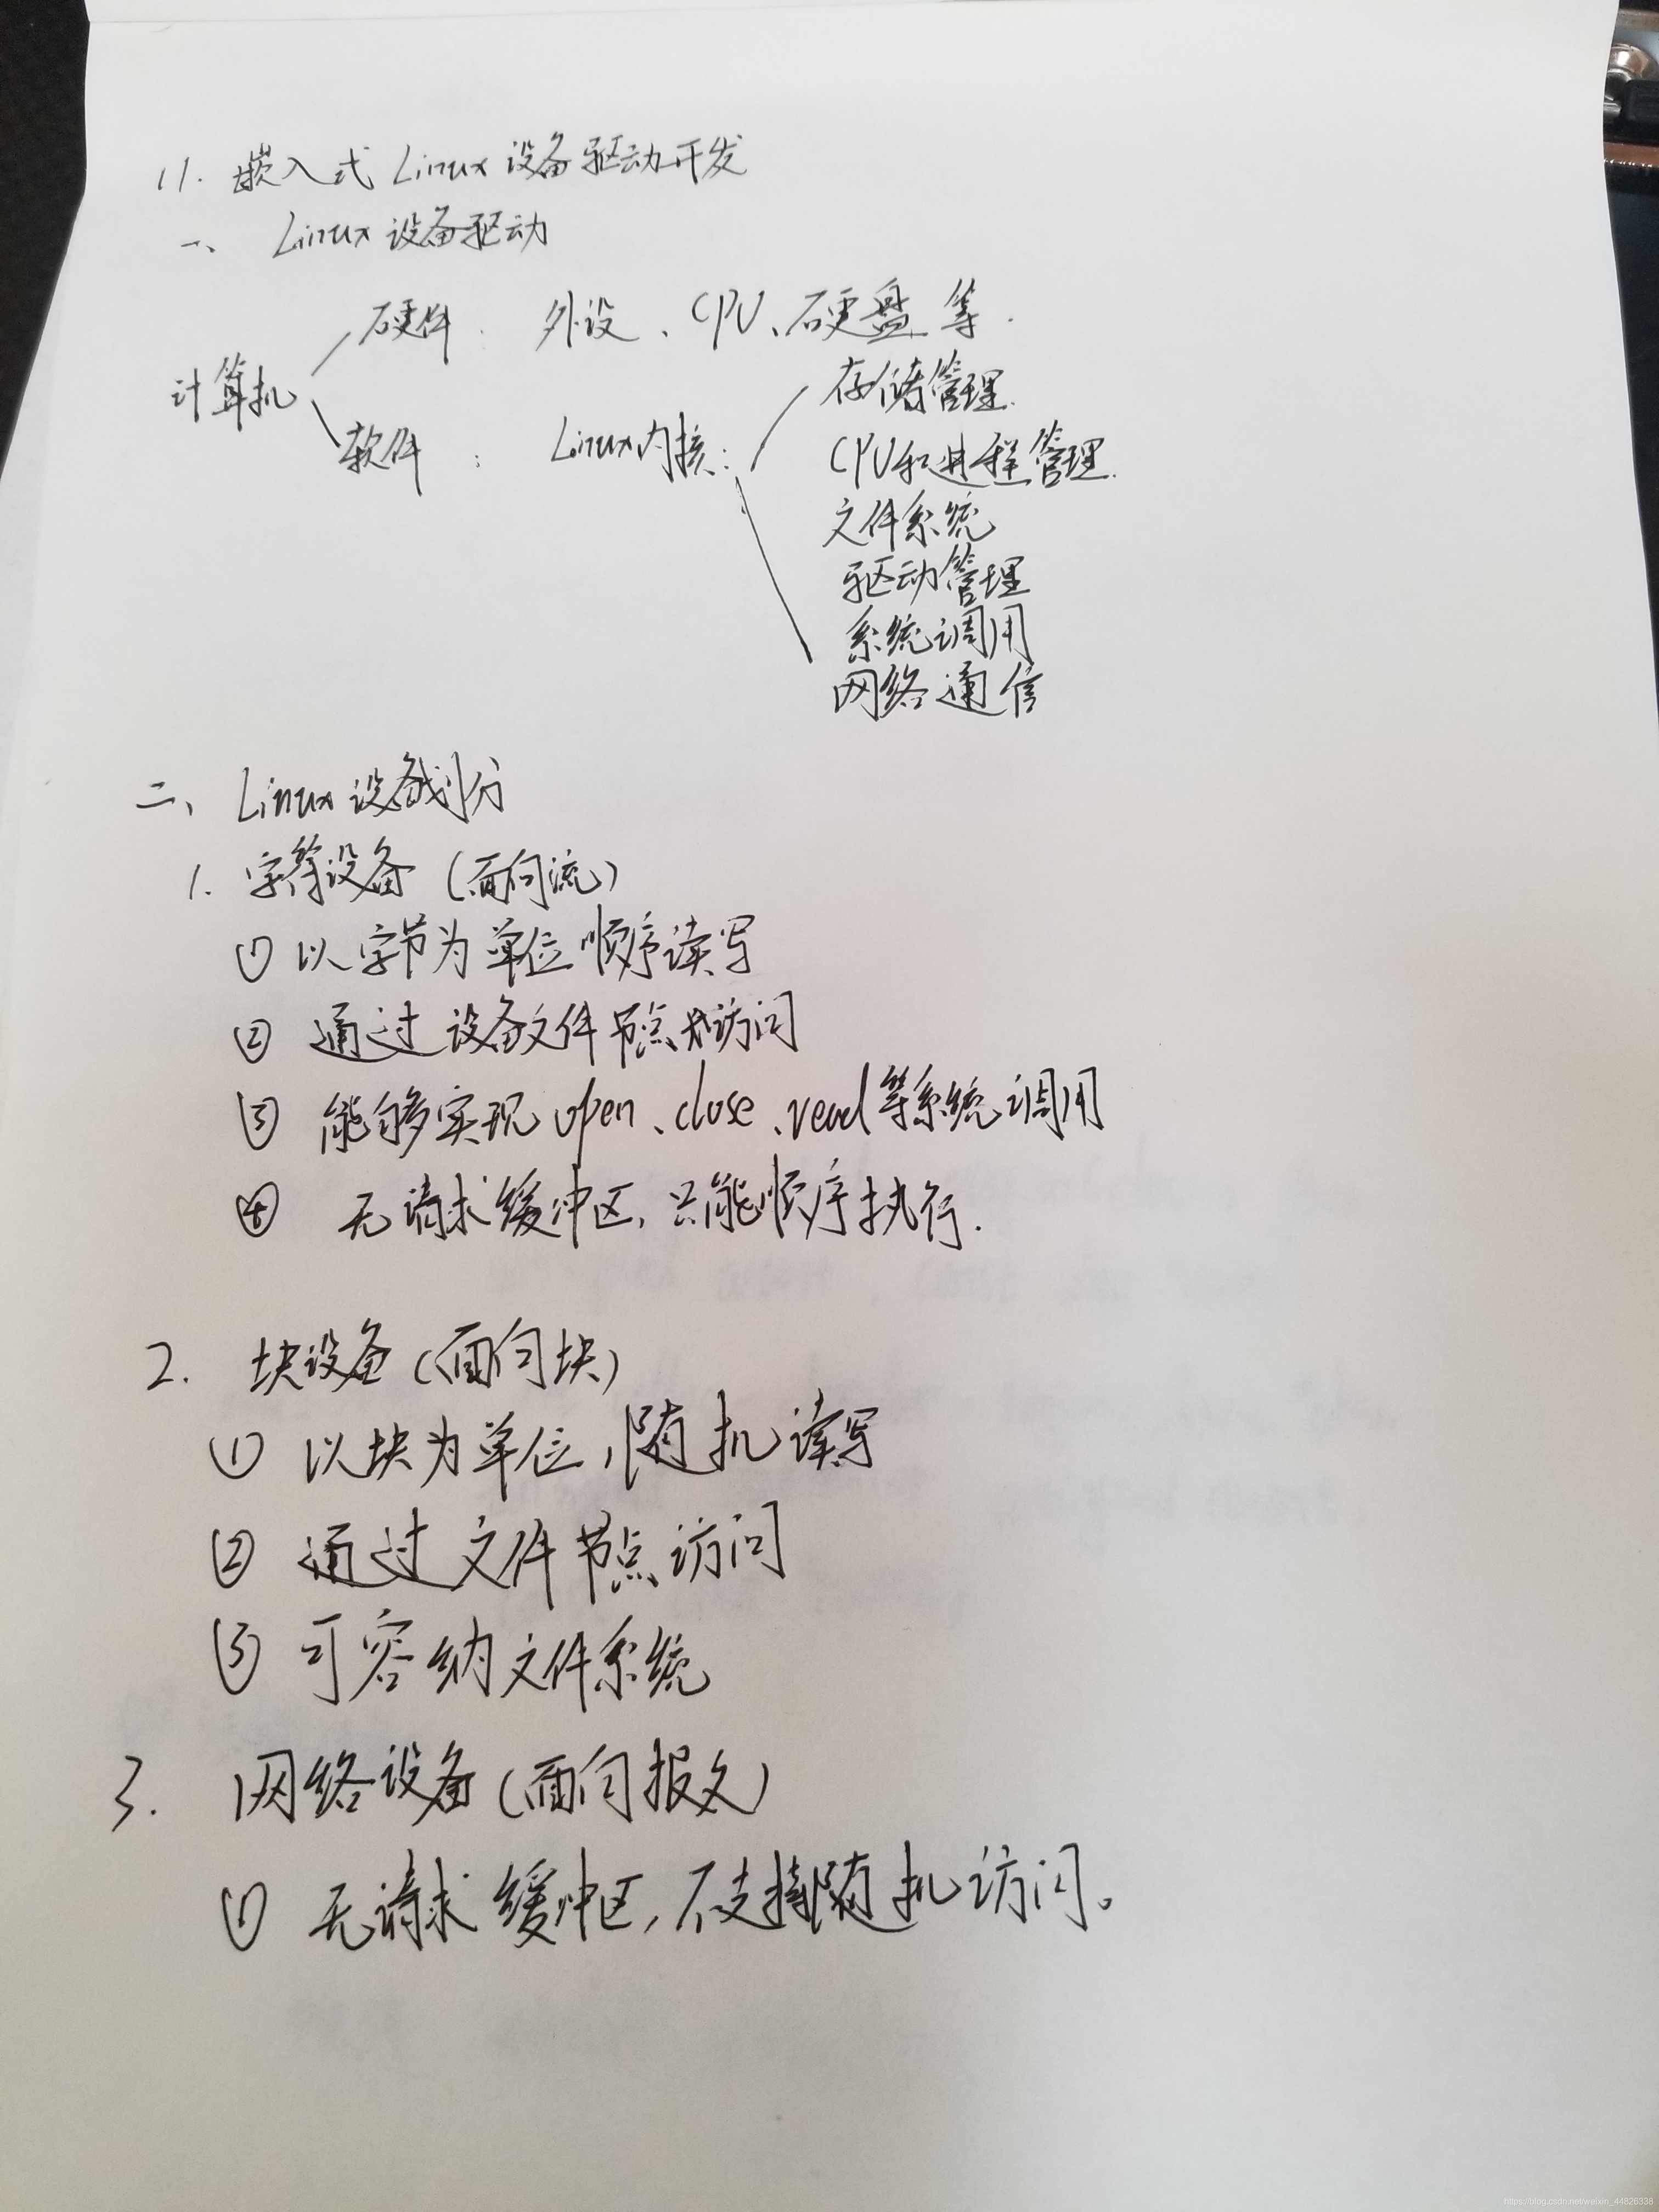 11. 嵌入式 Linux 设备驱动开发
一、 Linux 设备驱动
硬件: 外设、CPU、硬盘等.
计算机
软件: Linux内核:
存储管理.
CPU和进程管理.
文件系统
驱动管理
系统调用
网络通信
二、 Linux 设备划分
1. 字符设备 (面向流)
① 以字节为单位顺序读写
② 通过设备文件节点访问
③ 能够实现open、close、read等系统调用
④ 无请求缓冲区, 只能顺序执行.
2. 块设备 (面向块)
① 以块为单位, 随机读写
② 通过文件节点访问
③ 可容纳文件系统
3. 网络设备 (面向报文)
① 无请求缓冲区, 不支持随机访问。
https://blog.csdn.net/weixin_44826338